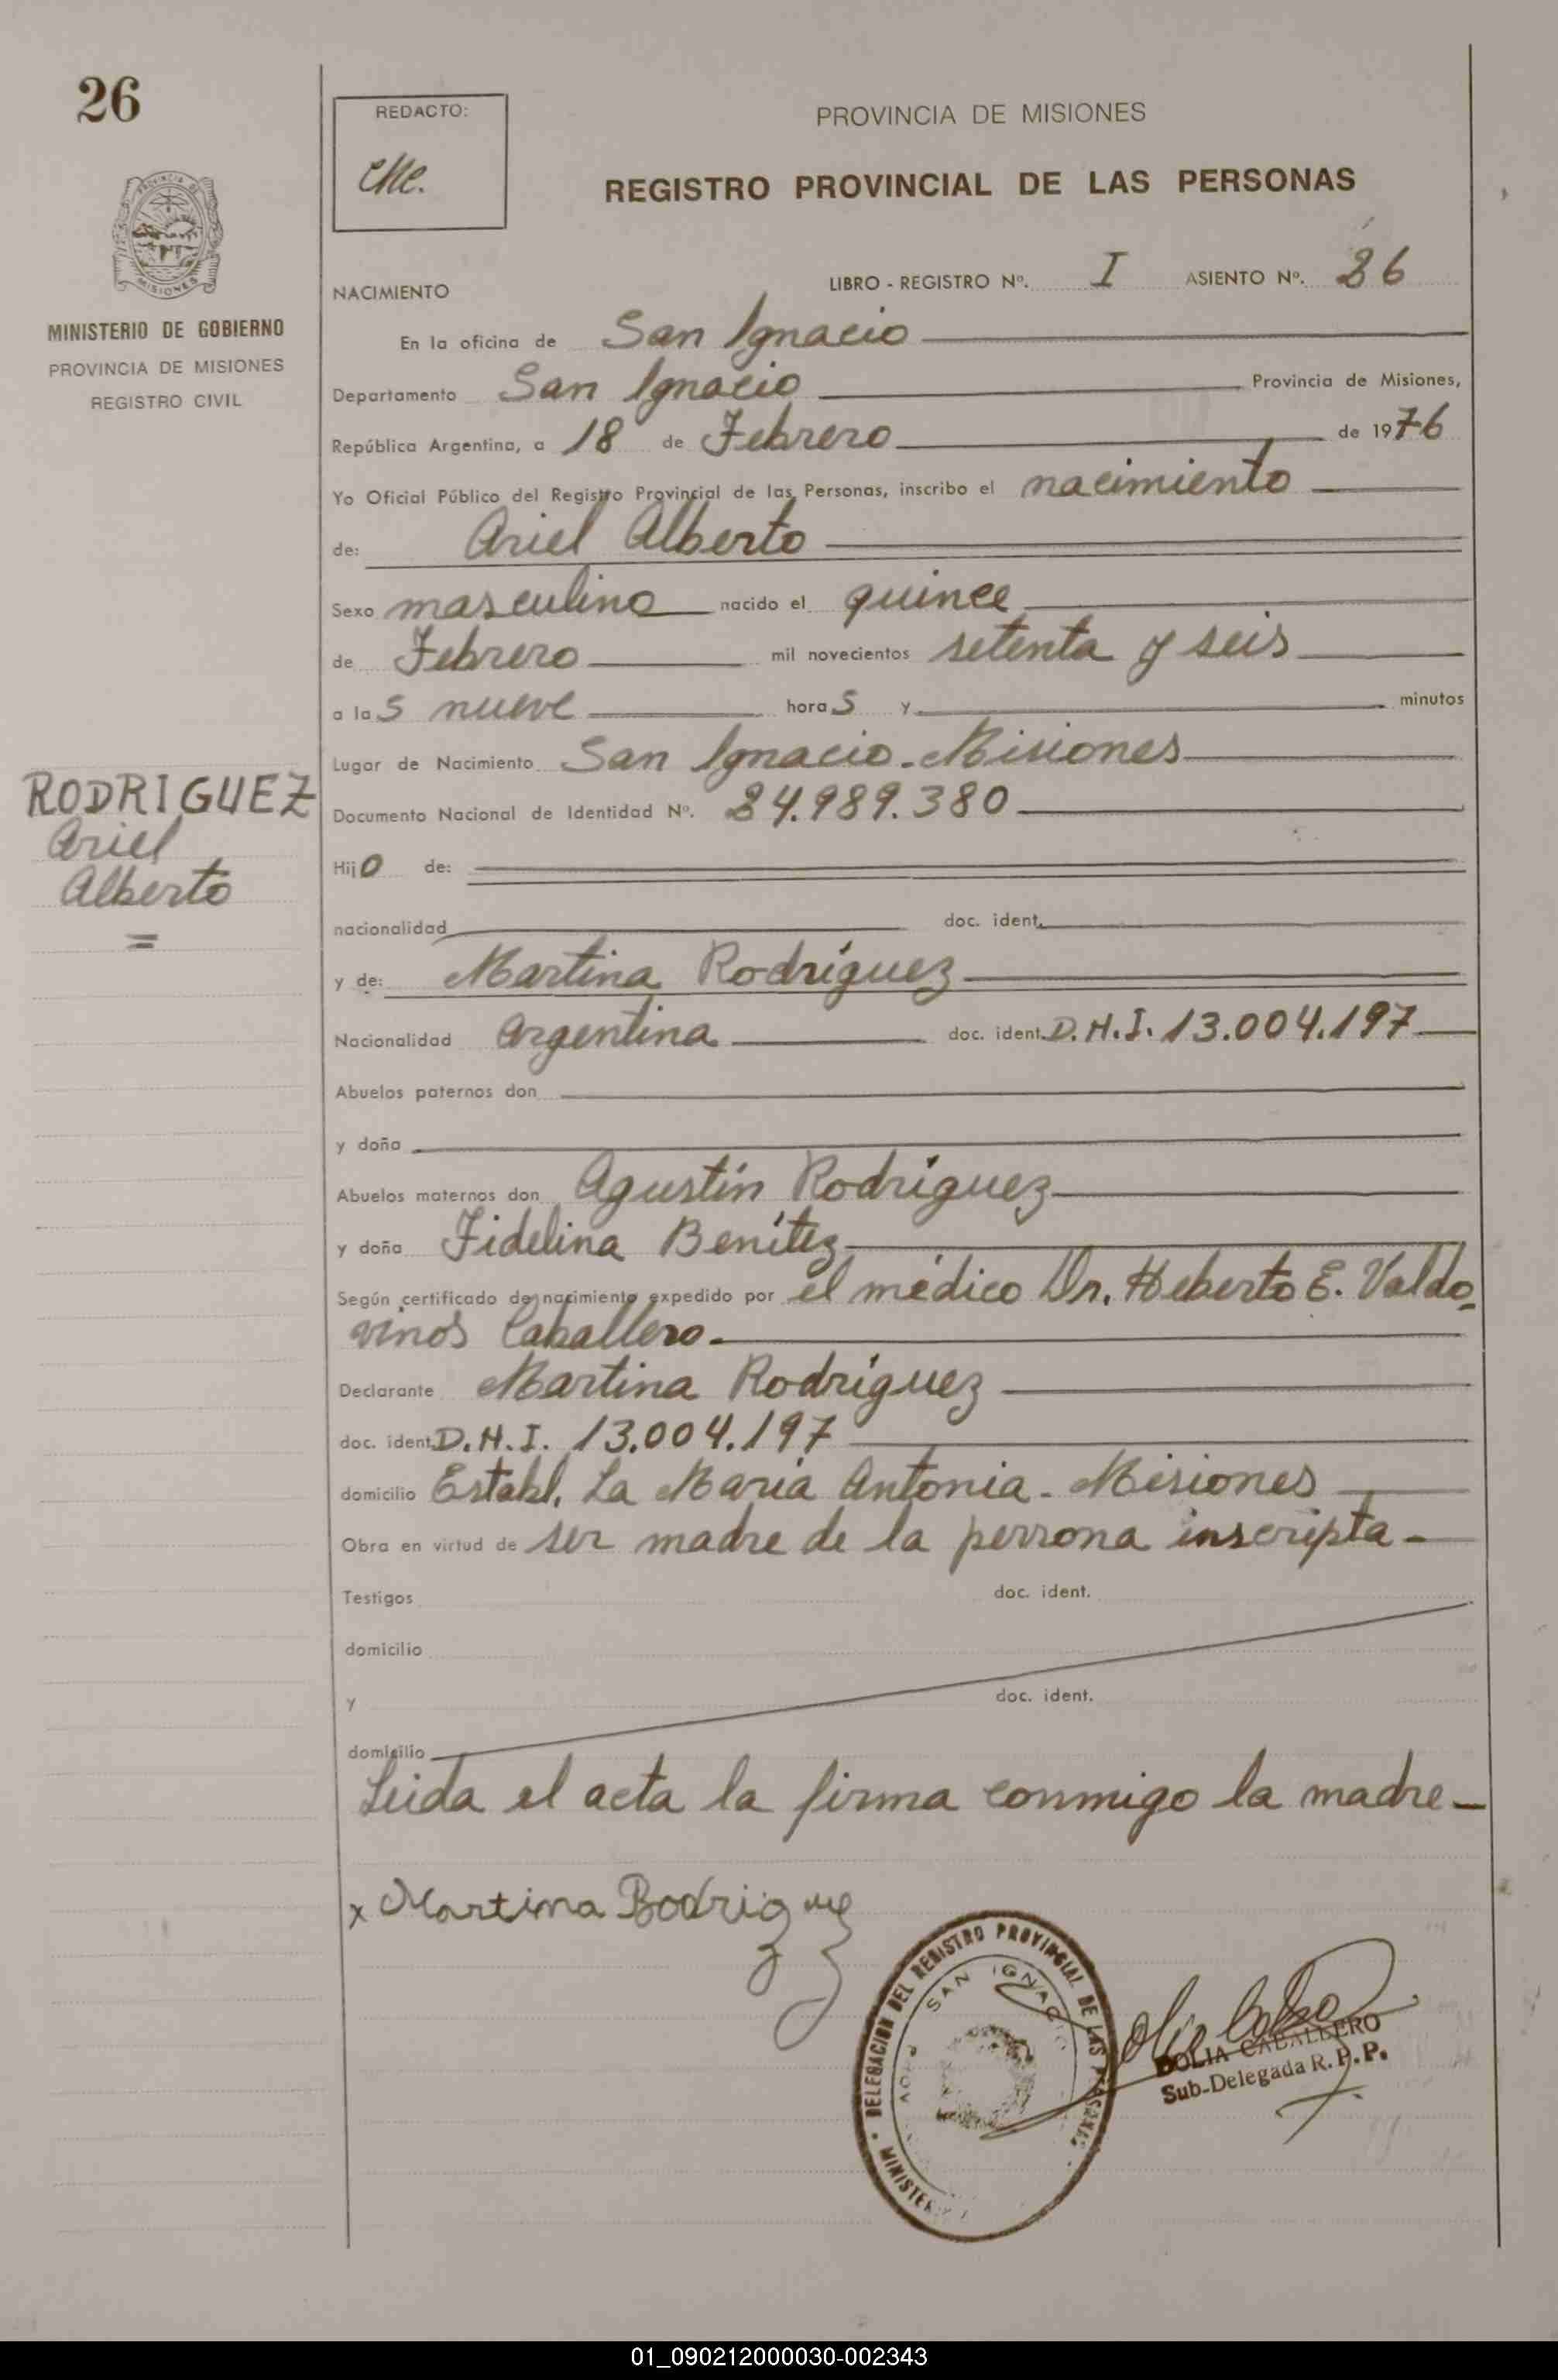 26
REDACTO:
PROVINCIA DE MISIONES
REGISTRO PROVINCIAL DE LAS PERSONAS
PROVINCIA DE
MISIONES
MINISTERIO DE GOBIERNO
PROVINCIA DE MISIONES
REGISTRO CIVIL
NACIMIENTO LIBRO - REGISTRO Nº. I ASIENTO Nº. 26
En la oficina de San Ignacio
Departamento San Ignacio Provincia de Misiones,
República Argentina, a 18 de Febrero de 1976
Yo Oficial Público del Registro Provincial de las Personas, inscribo el nacimiento
de: Ariel Alberto
Sexo masculino nacido el quince
de Febrero mil novecientos setenta y seis
a las nueve horas y minutos
Lugar de Nacimiento San Ignacio - Misiones
RODRIGUEZ
Ariel
Alberto
Documento Nacional de Identidad Nº. 24.989.380
Hijo de:
nacionalidad doc. ident.
y de: Martina Rodríguez
Nacionalidad Argentina doc. ident. D.N.I. 13.004.197
Abuelos paternos don
y doña
Abuelos maternos don Agustín Rodríguez
y doña Fidelina Benítez
Según certificado de nacimiento expedido por el médico Dr. Heberto E. Valdo
vinos Caballero.
Declarante Martina Rodríguez
doc. ident. D.N.I. 13.004.197
domicilio Establ. La María Antonia - Misiones
Obra en virtud de ser madre de la persona inscripta -
Testigos doc. ident.
domicilio
y doc. ident.
domicilio
Leida el acta la firma conmigo la madre -
x Martina Rodriguez
DELEGACION DEL REGISTRO PROVINCIAL DE LAS PERSONAS
SAN IGNACIO
DOLIA CABALLERO
Sub-Delegada R. P. P.
01_090212000030-002343